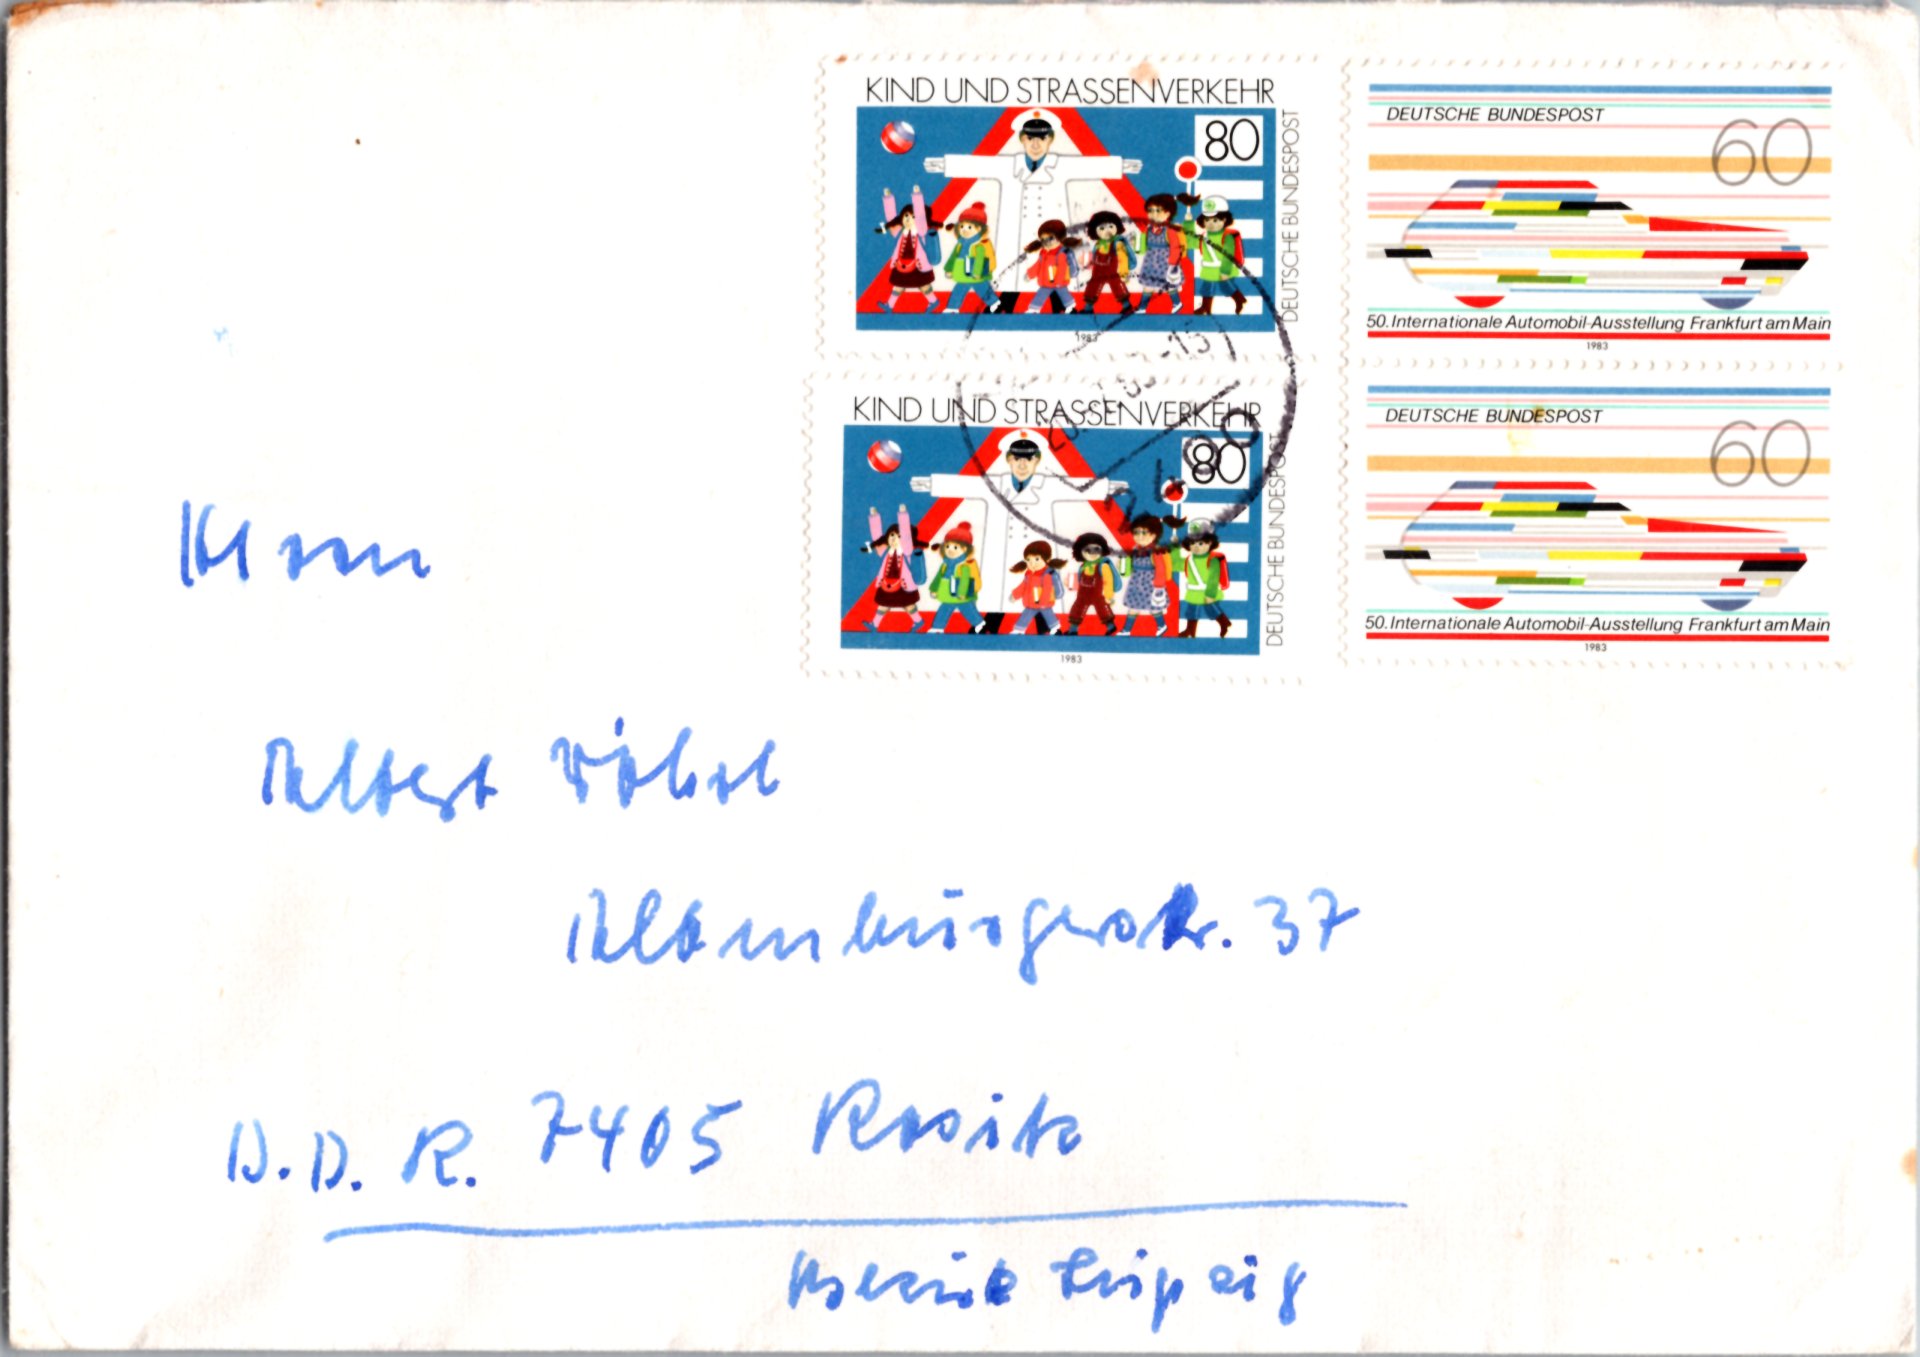 KIND UND STRASSENVERKEHR
80
DEUTSCHE BUNDESPOST
1983
DEUTSCHE BUNDESPOST
60
50. Internationale Automobil-Ausstellung Frankfurt am Main
1983
KIND UND STRASSENVERKEHR
80
DEUTSCHE BUNDESPOST
1983
DEUTSCHE BUNDESPOST
60
50. Internationale Automobil-Ausstellung Frankfurt am Main
1983
-15
2400
Herrn
Albert
Altenburgerstr. 37
D.D.R. 7405 Rositz
Bezirk Leipzig